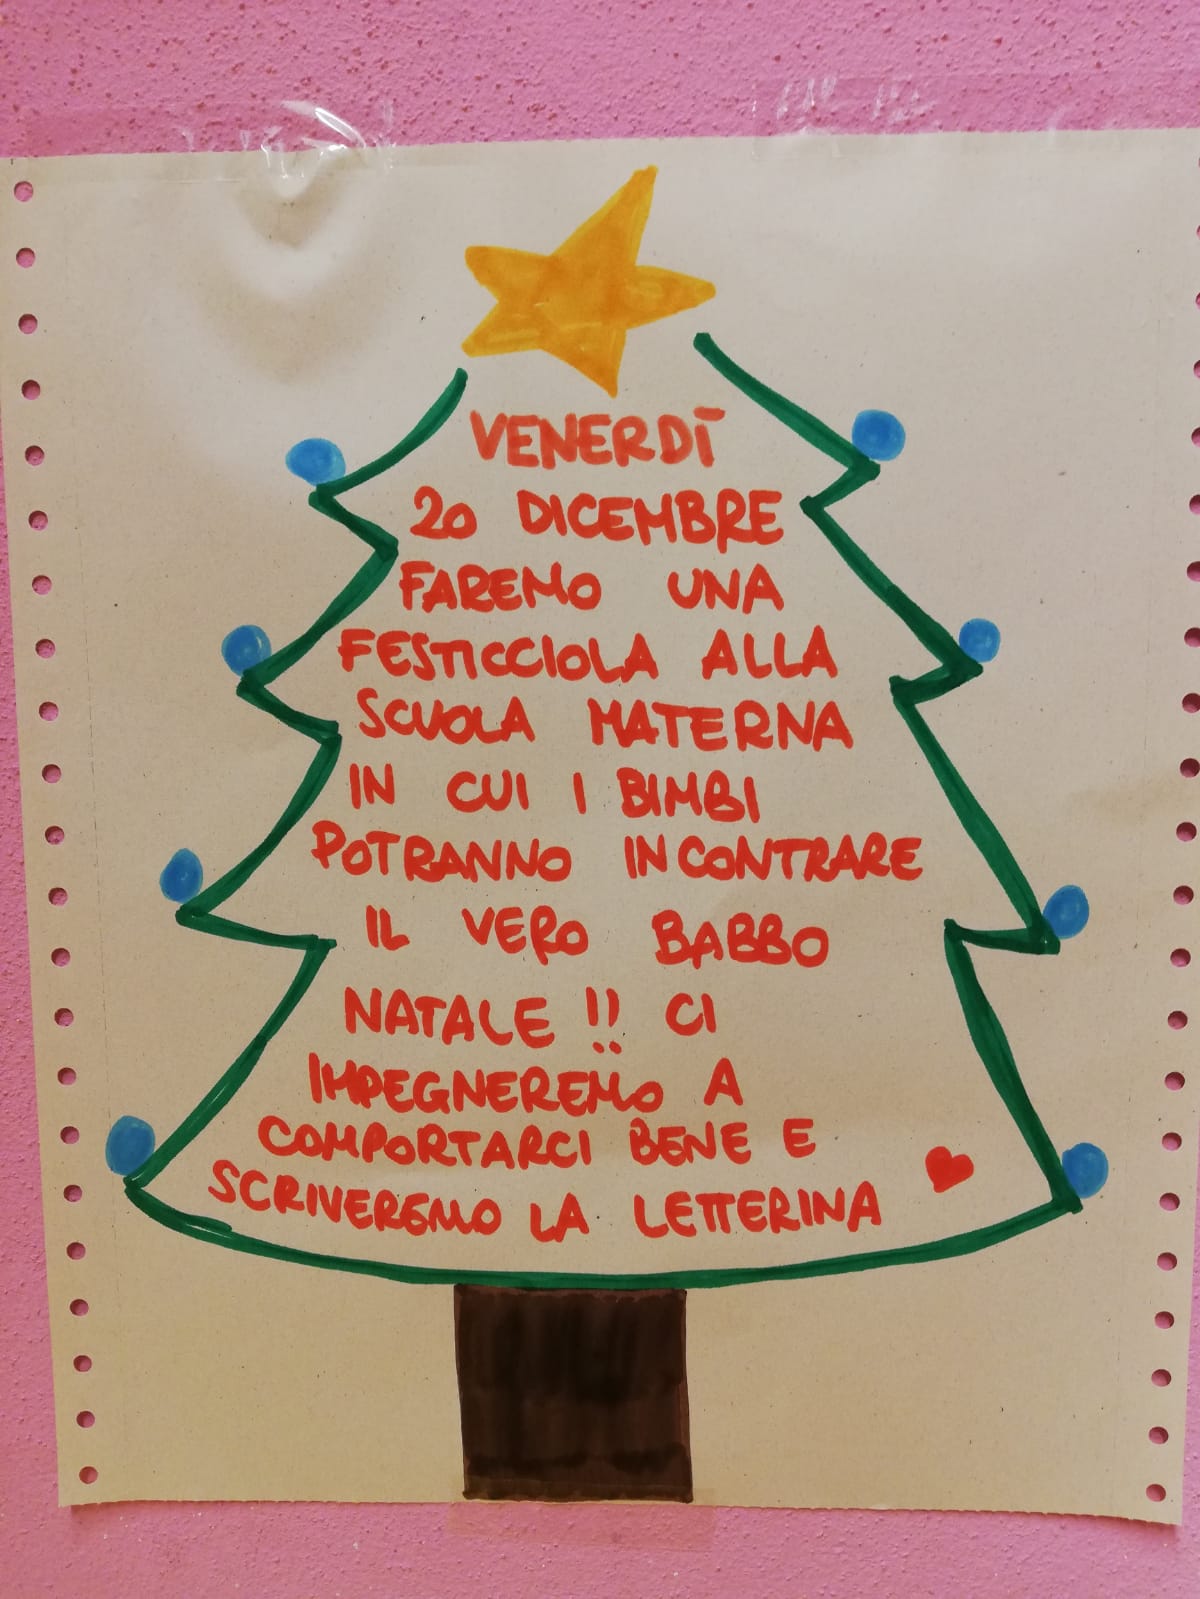 VENERDÌ
20 DICEMBRE
FAREMO UNA
FESTICCIOLA ALLA
SCUOLA MATERNA
IN CUI I BIMBI
POTRANNO INCONTRARE
IL VERO BABBO
NATALE !! CI
IMPEGNEREMO A
COMPORTARCI BENE E
SCRIVEREMO LA LETTERINA